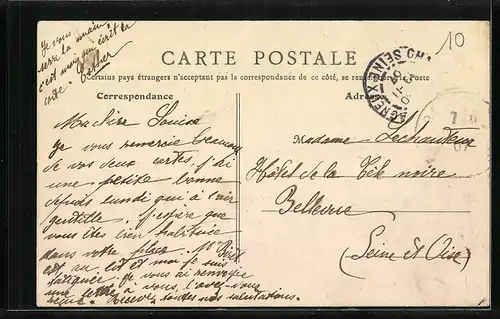 Je vous
serre la main,
c'est moi qui écrit la
carte. Esther
10
CARTE POSTALE
Certains pays étrangers n'acceptent pas la correspondance de ce côté, se renseigner à la Poste
Correspondance
Adresse
Ma chère Louise
Je vous remercie beaucoup
de vos deux cartes, j'ai
une petite bonne
depuis lundi qui a l'air
gentille. J'espère que
vous êtes bien habituée
dans votre place. Mr
est au lit et moi je suis
fatiguée. Je vous ai renvoyé
une lettre à vous, l'avez-vous
reçue. Recevez toutes nos salutations.
Madame Lechanteur
Hôtel de la Tête noire
Bellevue
(Seine et Oise)